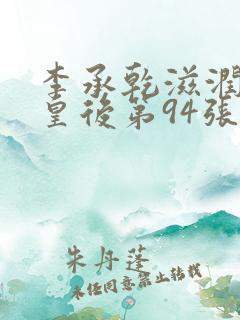 李承乾滋潤
皇後第94張
朱丹蓬
未经同意禁止转载